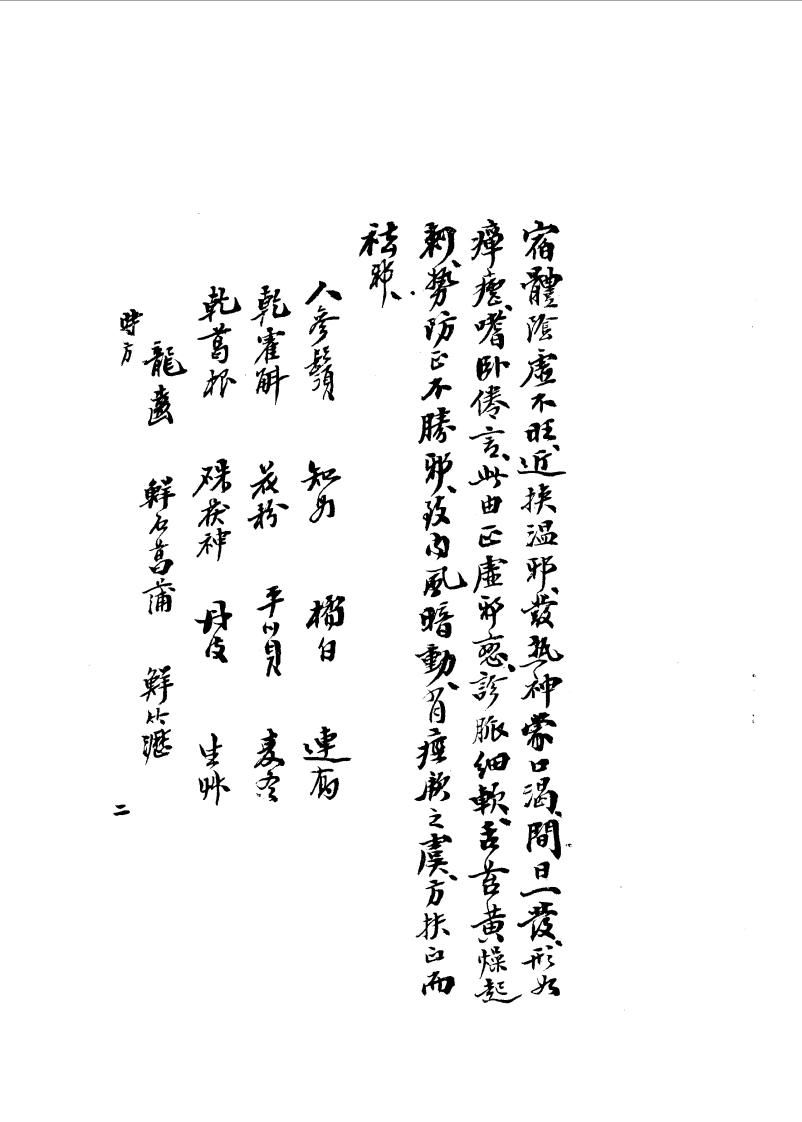 宿體陰虛不旺、近挾溫邪、發熱神蒙口渴、間日一發、形如
瘴瘧、嗜臥倦言、此由正虛邪戀、診脈細軟、舌苔黃燥起
刺、勢防正不勝邪、致內風暗動、有痙厥之虞、方扶正而
祛邪、
人參鬚 知母 橘白 連喬
乾霍斛 花粉 平川貝 麦冬
乾葛根 硃茯神 丹皮 生艸
龍齒 鮮石菖蒲 鮮竹瀝
時方
二